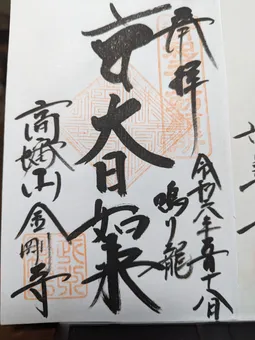 奉拝
令和六年 月十八日
鳴り龍
大日如来
高幡山 金剛寺